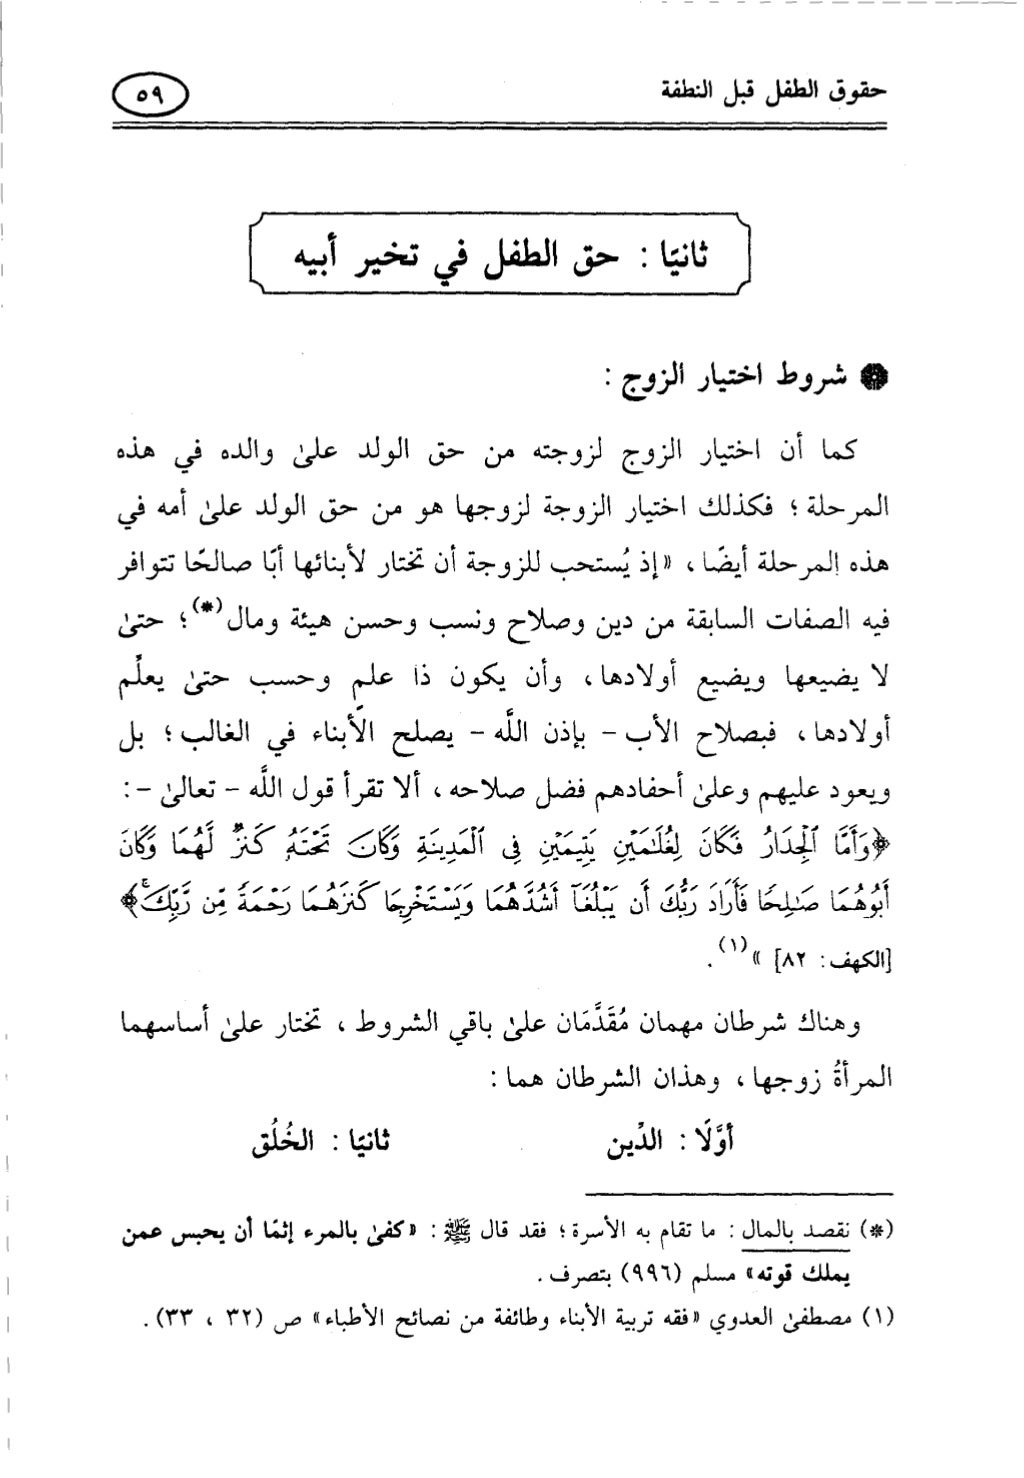 حقوق الطفل قبل النطفة
٥٩
ثانيًا : حق الطفل في تخير أبيه
شروط اختيار الزوج :
كما أن اختيار الزوج لزوجته من حق الولد علىٰ والده في هذه
المرحلة ؛ فكذلك اختيار الزوجة لزوجها هو من حق الولد علىٰ أمه في
هذه المرحلة أيضًا ، «إذ يُستحب للزوجة أن تختار لأبنائها أبًا صالحًا تتوافر
فيه الصفات السابقة من دين وصلاح ونسب وحسن هيئة ومال(*) ؛ حتىٰ
لا يضيعها ويضيع أولادها ، وأن يكون ذا علمٍ وحسب حتىٰ يعلِّم
أولادها ، فبصلاح الأب - بإذن اللَّه - يصلح الأبناء في الغالب ؛ بل
ويعود عليهم وعلىٰ أحفادهم فضل صلاحه ، ألا تقرأ قول اللَّه - تعالىٰ - :
﴿وَأَمَّا ٱلْجِدَارُ فَكَانَ لِغُلَٰمَيْنِ يَتِيمَيْنِ فِى ٱلْمَدِينَةِ وَكَانَ تَحْتَهُۥ كَنزٌ لَّهُمَا وَكَانَ
أَبُوهُمَا صَٰلِحًا فَأَرَادَ رَبُّكَ أَن يَبْلُغَآ أَشُدَّهُمَا وَيَسْتَخْرِجَا كَنزَهُمَا رَحْمَةً مِّن رَّبِّكَۚ﴾
[الكهف: ٨٢] »(١) .
وهناك شرطان مهمان مُقَدَّمَان علىٰ باقي الشروط ، تختار علىٰ أساسهما
المرأةُ زوجها ، وهذان الشرطان هما :
أوَّلًا : الدِّين ثانيًا : الخُلُق
(*) نقصد بالمال : ما تقام به الأسرة ؛ فقد قال ﷺ : «كفىٰ بالمرء إثمًا أن يحبس عمن
يملك قوته» مسلم (٩٩٦) بتصرف .
(١) مصطفىٰ العدوي «فقه تربية الأبناء وطائفة من نصائح الأطباء» ص (٣٢ ، ٣٣) .